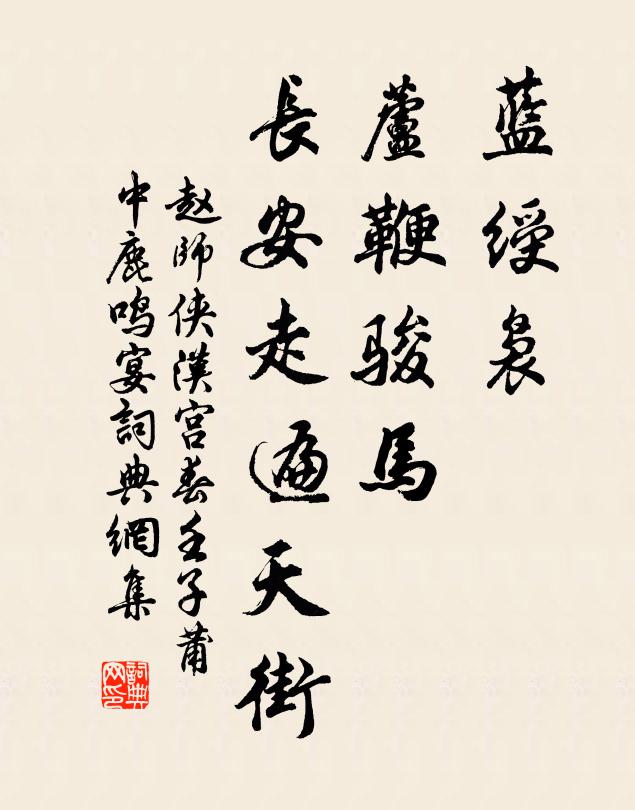 藍綬裊
蘆鞭骏馬
長安走遍天街
赵師侠漢宫春壬子莆
中鹿鸣宴詞典網集
詞典
网印